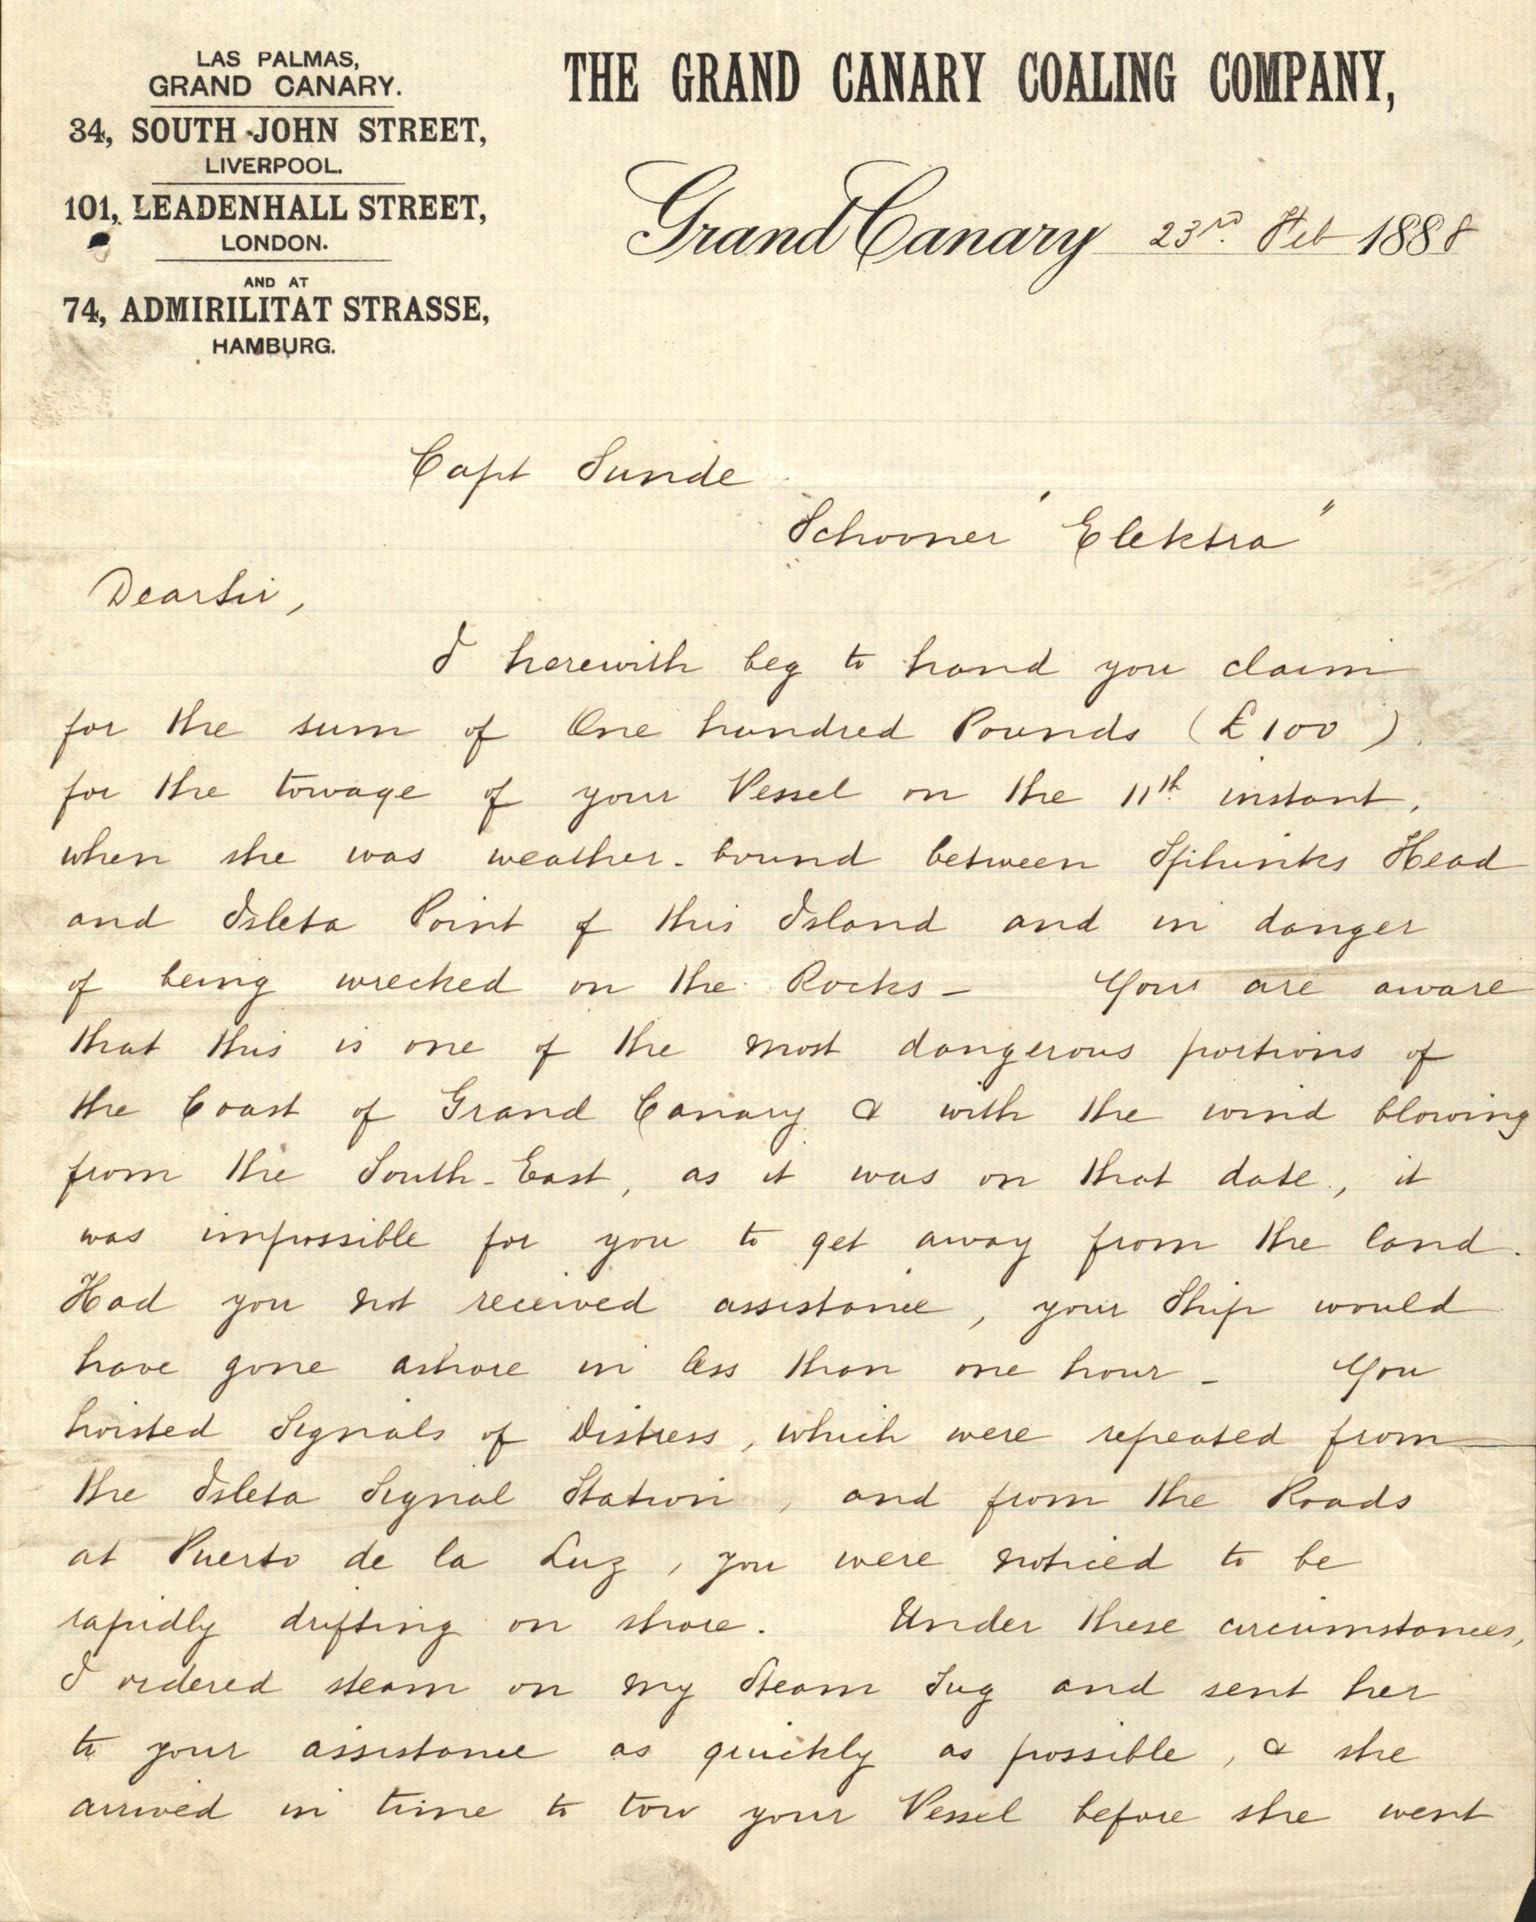 LAS PALMAS,
GRAND CANARY.
34, SOUTH JOHN STREET,
LIVERPOOL.
101, LEADENHALL STREET,
LONDON.
AND AT
74, ADMIRILITAT STRASSE,
HAMBURG.
THE GRAND CANARY COALING COMPANY,
Grand Canary 23rd Feb 1888
Capt Sunde
Schooner "Elektra"
Dear Sir,
I herewith beg to hand you claim
for the sum of One hundred Pounds (£100).
for the towage of your Vessel on the 11th instant,
when she was weather-bound between Sphinks Head
and Isleta Point of this Island and in danger
of being wrecked on the Rocks - You are aware
that this is one of the most dangerous portions of
the Coast of Grand Canary & with the wind blowing
from the South-East, as it was on that date, it
was impossible for you to get away from the land.
Had you not received assistance, your Ship would
have gone ashore in less than one hour - You
hoisted Signals of Distress, which were repeated from
the Isleta Signal Station, and from the Roads
at Puerto de la Luz, you were noticed to be
rapidly drifting on shore. Under these circumstances,
I ordered steam on my Steam Tug and sent her
to your assistance as quickly as possible, & she
arrived in time to tow your Vessel before she went